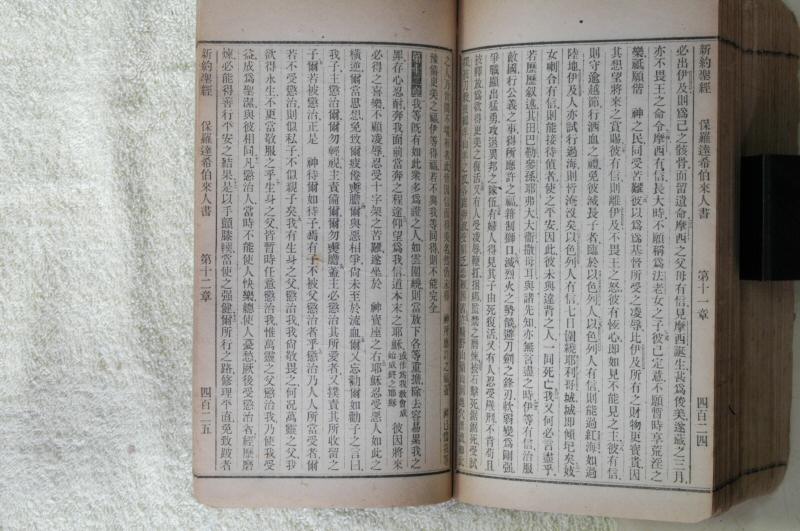 新約聖經 保羅達希伯來人書 第十一章 四百二四
必出伊及則爲己之骸骨而留遺命摩西之父母有信見摩西誕生甚爲俊美遂藏之三月
亦不畏王之命令摩西有信長大時不願稱爲法老女之子彼已定意不願暫時享荒淫之
樂祗願偕 神之民同受苦難彼以爲爲基督所受之凌辱比伊及所有之財物更寶貴因
其想望將來之賞賜彼有信則離伊及不畏王之怒彼有恆心即如見不能見之王彼有信
則守逾越節行洒血之禮免彼滅長子者臨於以色列人以色列人有信則能過紅海如過
陸地伊及人亦試行過海則皆淹沒矣以色列人有信七日圍繞耶利哥城城即傾圮矣妓
女喇合有信則能接待偵者使之平安因此彼未與違背之人一同死亡我又何必言盡乎
若歷歷叙述其田巴勒參孫耶弗大大衞撒母耳與諸先知亦無言盡之時伊等有信治服
敵國行公義之事得所應許之福箝制獅口滅烈火之勢脫避刀劍之鋒刃軟弱變爲剛强
爭戰顯出猛勇攻潰異邦之隊伍有婦人得見其子由死復活又有人忍受極刑不肯苟且
被釋放爲欲得更美之復活又有人受凌辱鞭扛捆縛監禁之磨煉被石擊死鋸鋸死受試
豫備更美之福伊等得福若不與我等同得則不能完全
第十二章 我等旣有如此衆多爲證之人如雲圍繞則當放下各等重擔除去容易累我之
罪存心忍耐奔我面前當奔之程途仰望爲我信道本末之耶穌 或作爲我教會成始成終之耶穌 彼因將來
必得之喜樂不顧凌辱忍受十字架之苦難遂坐於 神寶座之右耶穌忍受惡人如此之
橫逆爾當思想免致爾疲倦喪膽爾與惡相爭尚未至於流血爾又忘勸爾如勸子之言曰
我子主懲治爾爾勿輕視主責備爾爾勿喪膽蓋主必懲治其所愛者又撲責其所收留之
子爾若被懲治正是 神待爾如待子焉有子不被父懲治者乎懲治乃人人所當受者爾
若不受懲治則似私子不似親子矣我有生身之父懲治我我尚敬畏之何况萬靈之父我
欲得永生不更當敬服之乎生身之父皆暫時任意懲治我惟萬靈之父懲治我乃使我受
益成爲聖潔與彼相同凡懲治人當時不能使人快樂總使人憂愁厥後受懲治者經磨
煉必能得善行平安之結果是以手顫膝輭當使之强健爾所行之路修理平直免致跛者
新約聖經 保羅達希伯來人書 第十二章 四百二五